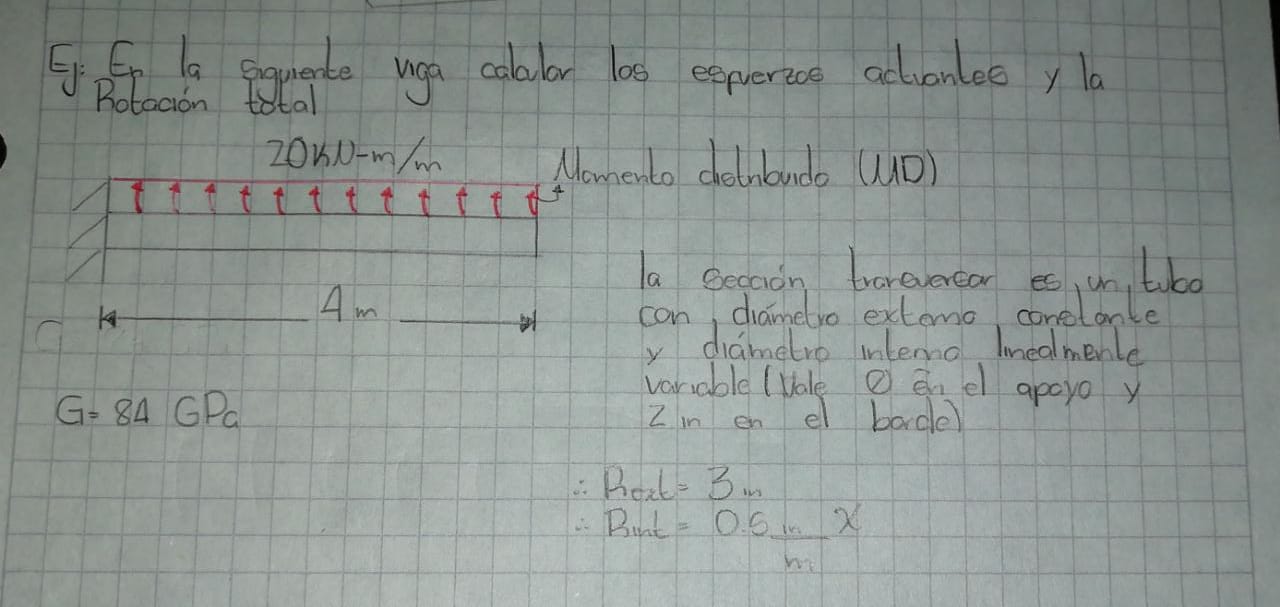 Ej: En la siguiente viga calcular los esfuerzos actuantes y la
Rotación total
20kN-m/m
Momento distribuido (MD)
la sección transversar es un tubo
con diámetro externo constante
y diámetro interno linealmente
variable (Vale 0 en el apoyo y
2 in en el borde)
4 m
G= 84 GPa
∴ Rext= 3 in
∴ Rint = 0.5 in/m X